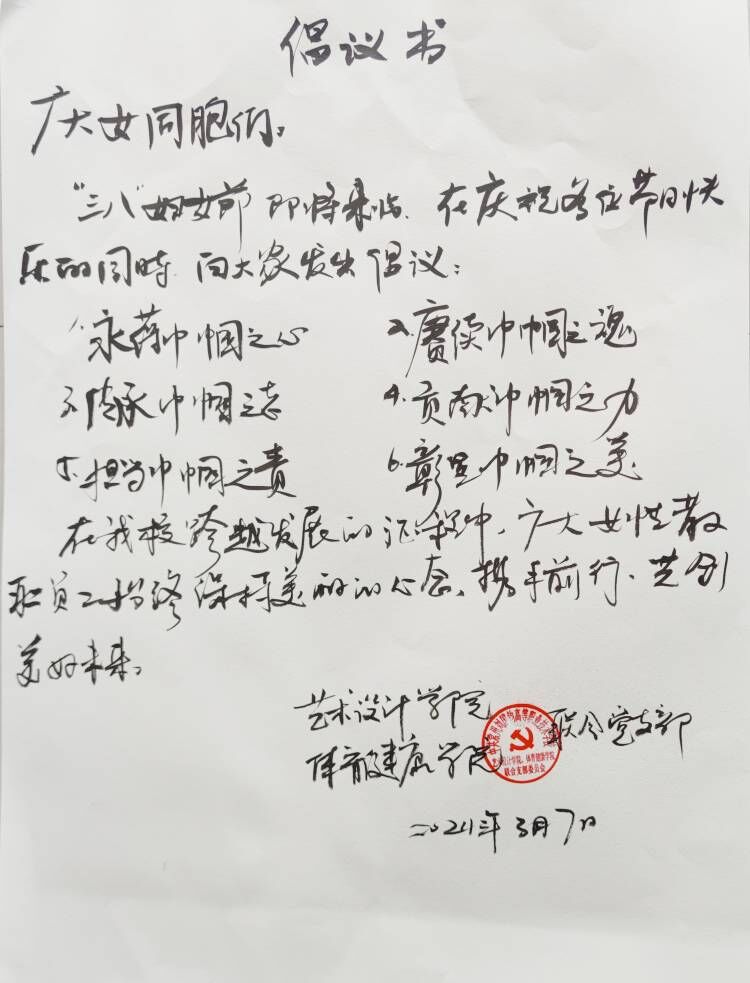 倡议书
广大女同胞们：
“三八”妇女节即将来临，在庆祝各位节日快
乐的同时，向大家发出倡议：
1.永葆巾帼之心 2.赓续巾帼之魂
3.传承巾帼之志 4.贡献巾帼之力
5.担当巾帼之责 6.彰显巾帼之美
在我校跨越发展的征程中，广大女性教
职员工始终保持美丽的心态，携手前行，共创
美好未来。
艺术设计学院
体育健康学院 联合党支部
联合支部委员会
二〇二四年3月7日